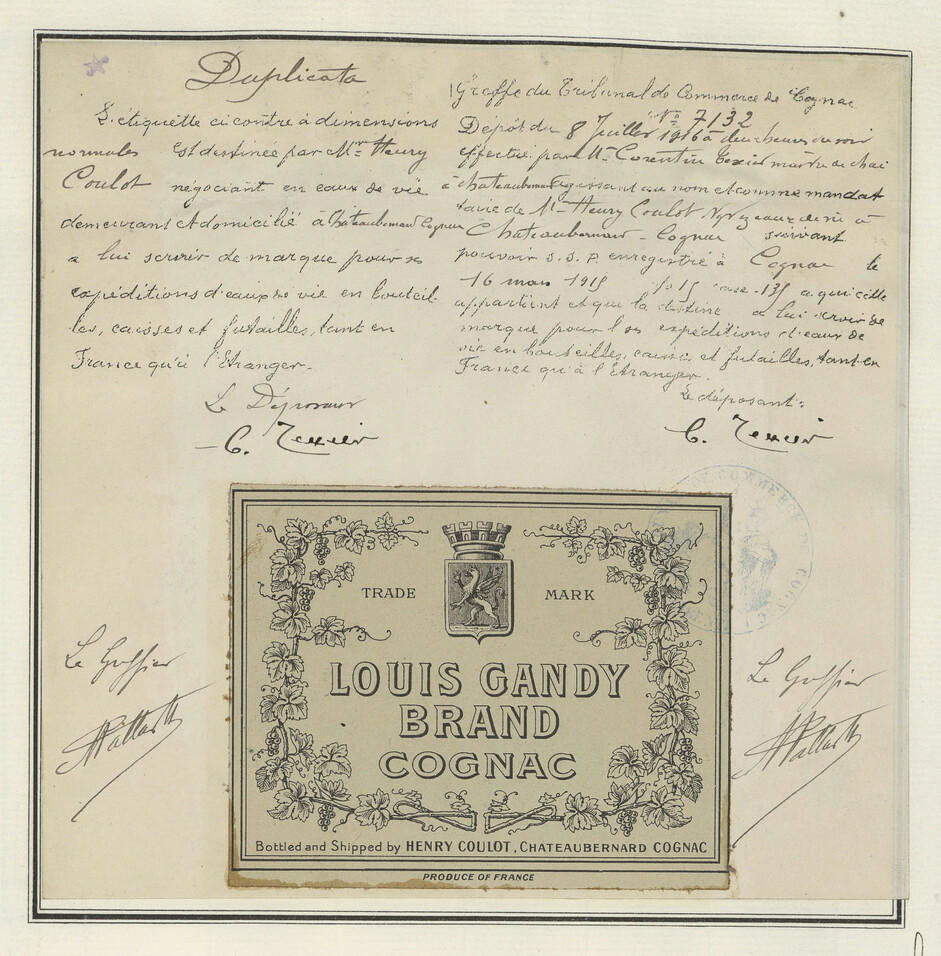 Duplicata
L'étiquette ci contre à dimensions
normales est destinée par Mr Henry
Coulot négociant en eaux de vie
demeurant et domicilié à Châteaubernard Cognac
a lui servir de marque pour ses
expéditions d'eaux de vie en bouteil-
les, caisses et futailles, tant en
France qu'à l'Etranger.
Le Déposant
C. Texier
Greffe du Tribunal de Commerce de Cognac
No 7132
Dépôt du 8 Juillet 1916 à deux heures du soir
effectué par Mr Corentin Texier maître de chai
à Chateaubernard agissant au nom et comme mandat
taire de Mr Henry Coulot Ngt eaux de vie à
Chateaubernard - Cognac suivant
pouvoir s.s.p. enregistré à Cognac le
16 mars 1915 fo 15 case 135 a qui elle
appartient et que la destine a lui servir de
marque pour les expéditions d'eaux de
vie en bouteilles, caisses et futailles, tant en
France qu'à l'Etranger.
Le déposant:
C. Texier
TRADE MARK
LOUIS GANDY
BRAND
COGNAC
Bottled and Shipped by HENRY COULOT, CHATEAUBERNARD COGNAC
PRODUCE OF FRANCE
Le Greffier
Le Greffier
DE COMMERCE DE COGNAC